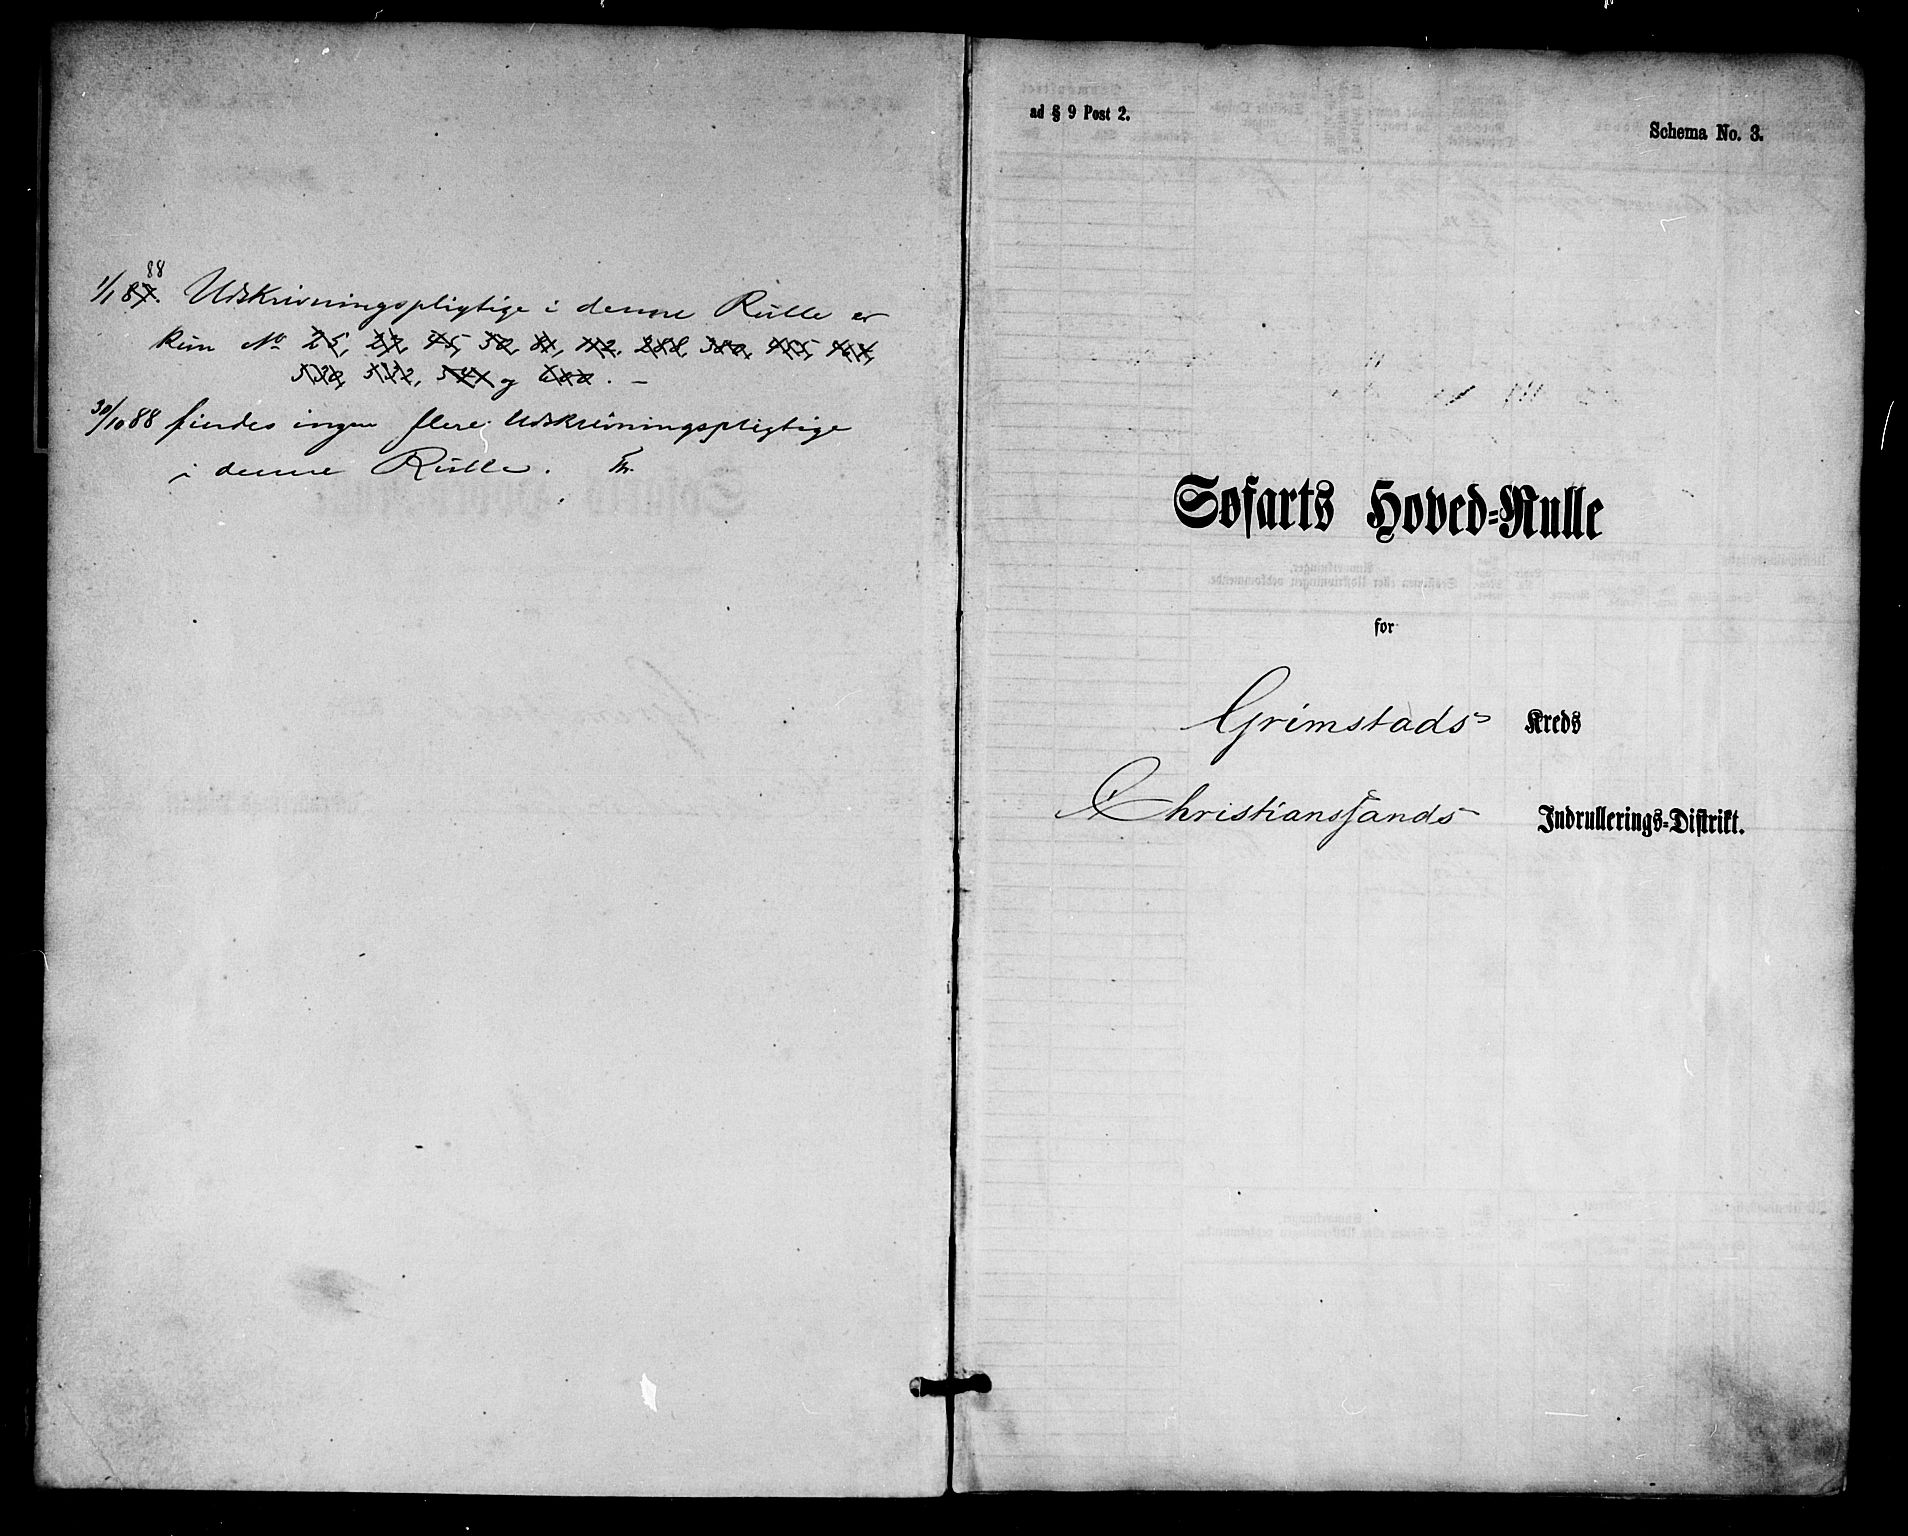 88
1/1 87. Udskrivningspligtige i denne Rulle er
kun No 25, 27, 45, 50, 81, 112, 288, 380, 455,
og
30/10 88 findes ingen flere Udskrivningspligtige
i denne Rulle. Th.
ad § 9 Post 2.
Schema No. 3.
Søfarts Hoved=Rulle
for
Grimstads Kreds
Christianssands Indrullerings=Distrikt.